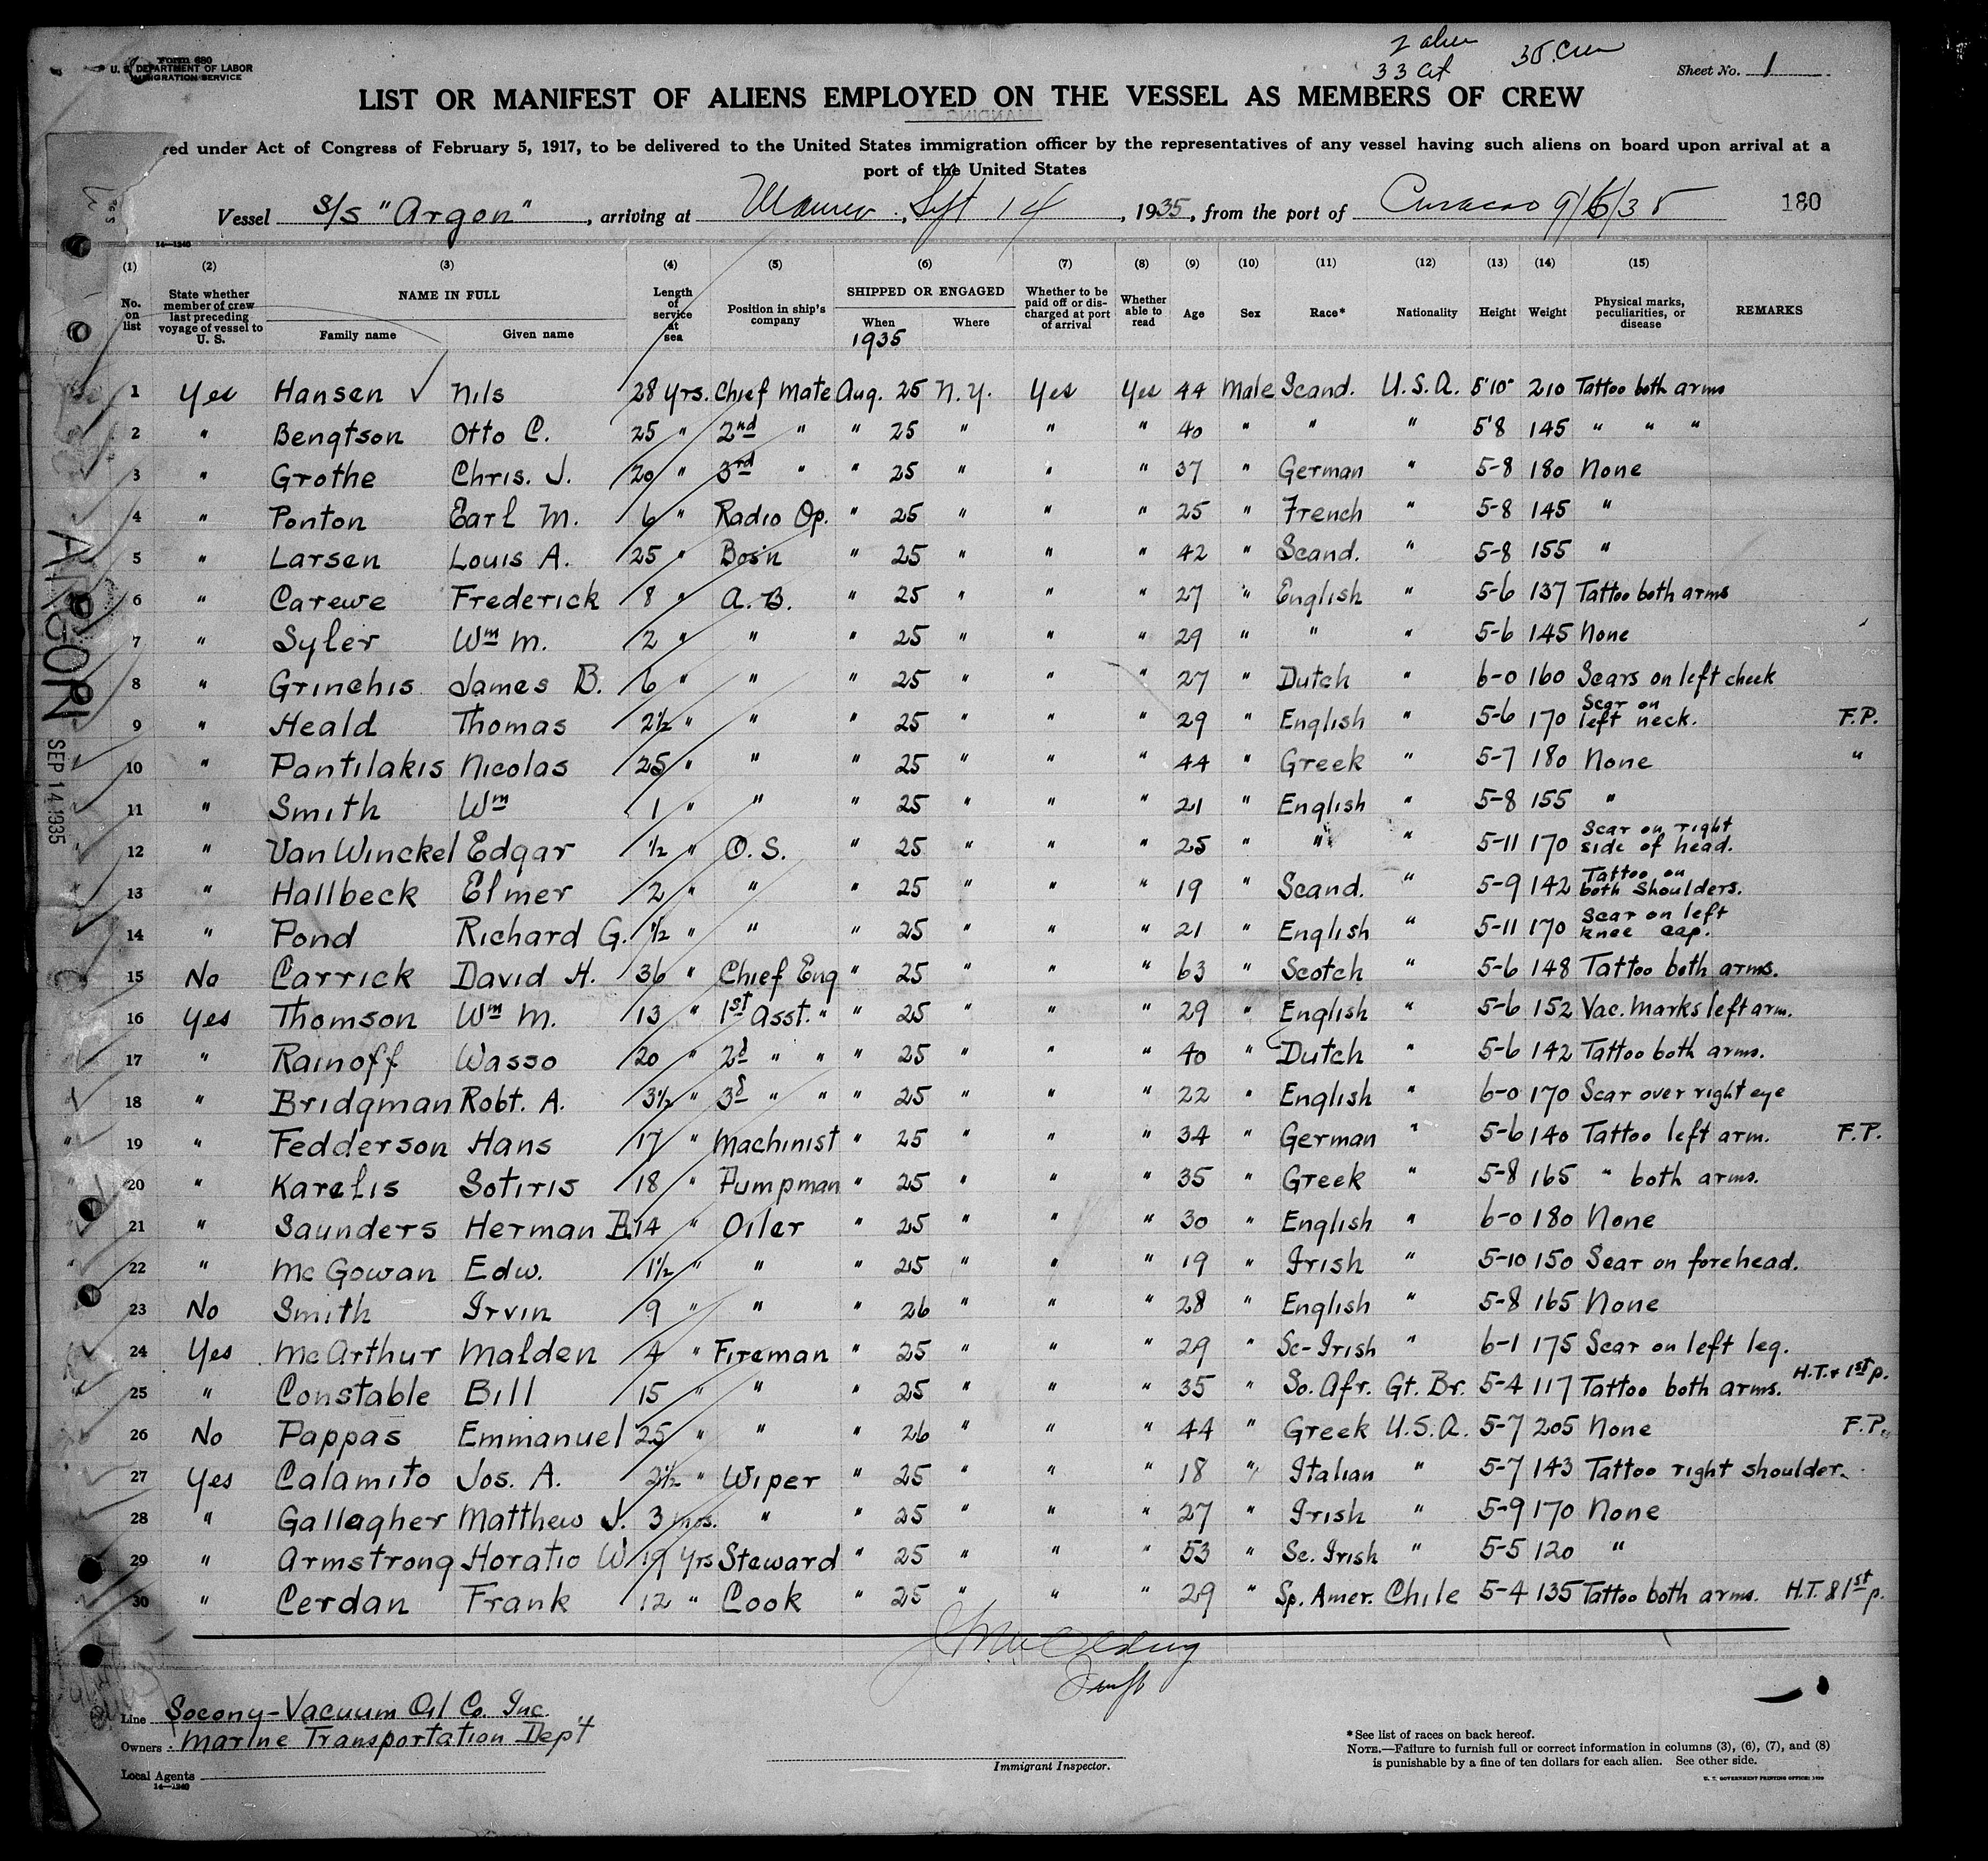 Form 680
U. S. DEPARTMENT OF LABOR
IMMIGRATION SERVICE
2 alien
33 Cit
35 Crew
Sheet No. 1
LIST OR MANIFEST OF ALIENS EMPLOYED ON THE VESSEL AS MEMBERS OF CREW
red under Act of Congress of February 5, 1917, to be delivered to the United States immigration officer by the representatives of any vessel having such aliens on board upon arrival at a
port of the United States
Vessel S/S "Argon", arriving at Maurer, Sept 14, 1935, from the port of Curacao 9/6/35 180
14—1240
(1) (2) (3) (4) (5) (6) (7) (8) (9) (10) (11) (12) (13) (14) (15)
No. on list State whether member of crew last preceding voyage of vessel to U. S. NAME IN FULL Family name Given name Length of service at sea Position in ship's company SHIPPED OR ENGAGED When 1935 Where Whether to be paid off or discharged at port of arrival Whether able to read Age Sex Race* Nationality Height Weight Physical marks, peculiarities, or disease REMARKS
1 Yes Hansen ✓ Nils 28 yrs. Chief Mate Aug. 25 N.Y. Yes Yes 44 Male Scand. U.S.A. 5'10" 210 Tattoo both arms
2 " Bengtson Otto C. 25 " 2nd " " 25 " " " 40 " " " 5'8 145 " " "
3 " Grothe Chris. J. 20 " 3rd " " 25 " " " 37 " German " 5-8 180 None
4 " Ponton Earl M. 6 " Radio Op. " 25 " " " 25 " French " 5-8 145 "
5 " Larsen Louis A. 25 " Bos'n " 25 " " " 42 " Scand. " 5-8 155 "
6 " Carewe Frederick 8 " A.B. " 25 " " " 27 " English " 5-6 137 Tattoo both arms
7 " Syler Wm M. 2 " " " 25 " " " 29 " " " 5-6 145 None
8 " Grinchis James B. 6 " " " 25 " " " 27 " Dutch " 6-0 160 Scars on left cheek
9 " Heald Thomas 2½ " " " 25 " " " 29 " English " 5-6 170 Scar on left neck. F.P.
10 " Pantilakis Nicolas 25 " " " 25 " " " 44 " Greek " 5-7 180 None "
11 " Smith Wm 1 " " " 25 " " " 21 " English " 5-8 155 "
12 " Van Winckel Edgar ½ " O.S. " 25 " " " 25 " " " 5-11 170 Scar on right side of head.
13 " Hallbeck Elmer 2 " " " 25 " " " 19 " Scand. " 5-9 142 Tattoo on both shoulders.
14 " Pond Richard G. ½ " " " 25 " " " 21 " English " 5-11 170 Scar on left knee cap.
15 No Carrick David H. 36 " Chief Eng " 25 " " " 63 " Scotch " 5-6 148 Tattoo both arms.
16 Yes Thomson Wm M. 13 " 1st Asst. " " 25 " " " 29 " English " 5-6 152 Vac. Marks left arm.
17 " Rainoff Wasso 20 " 2d " " " 25 " " " 40 " Dutch " 5-6 142 Tattoo both arms.
18 " Bridgman Robt. A. 3½ " 3d " " " 25 " " " 22 " English " 6-0 170 Scar over right eye
19 " Fedderson Hans 17 " Machinist " 25 " " " 34 " German " 5-6 140 Tattoo left arm. F.P.
20 " Karelis Sotiris 18 " Pumpman " 25 " " " 35 " Greek " 5-8 165 " both arms.
21 " Saunders Herman B. 14 " Oiler " 25 " " " 30 " English " 6-0 180 None
22 " McGowan Edw. 1½ " " " 25 " " " 19 " Irish " 5-10 150 Scar on forehead.
23 No Smith Irvin 9 " " " 26 " " " 28 " English " 5-8 165 None
24 Yes McArthur Malden 4 " Fireman " 25 " " " 29 " Sc-Irish " 6-1 175 Scar on left leg.
25 " Constable Bill 15 " " " 25 " " " 35 " So. Afr. Gt. Br. 5-4 117 Tattoo both arms. H.T. & 1st p.
26 No Pappas Emmanuel 25 " " " 26 " " " 44 " Greek U.S.A. 5-7 205 None F.P.
27 Yes Calamito Jos. A. 2½ " Wiper " 25 " " " 18 " Italian " 5-7 143 Tattoo right shoulder.
28 " Gallagher Matthew J. 3 mos. " " 25 " " " 27 " Irish " 5-9 170 None
29 " Armstrong Horatio W 19 Yrs Steward " 25 " " " 53 " Sc. Irish " 5-5 120 "
30 " Cerdan Frank 12 " Cook " 25 " " " 29 " Sp. Amer. Chile 5-4 135 Tattoo both arms. H.T. & 1st p.
ARGON
SEP 14 1935
Line Socony-Vacuum Oil Co. Inc.
Owners Marine Transportation Dep't
Local Agents
14—1240
Immigrant Inspector.
* See list of races on back hereof.
NOTE.—Failure to furnish full or correct information in columns (3), (6), (7), and (8)
is punishable by a fine of ten dollars for each alien. See other side.
U. S. GOVERNMENT PRINTING OFFICE: 1929